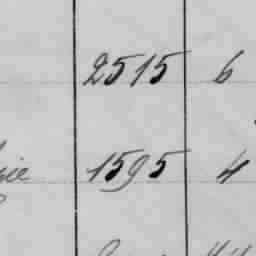 2515 6
1595 4